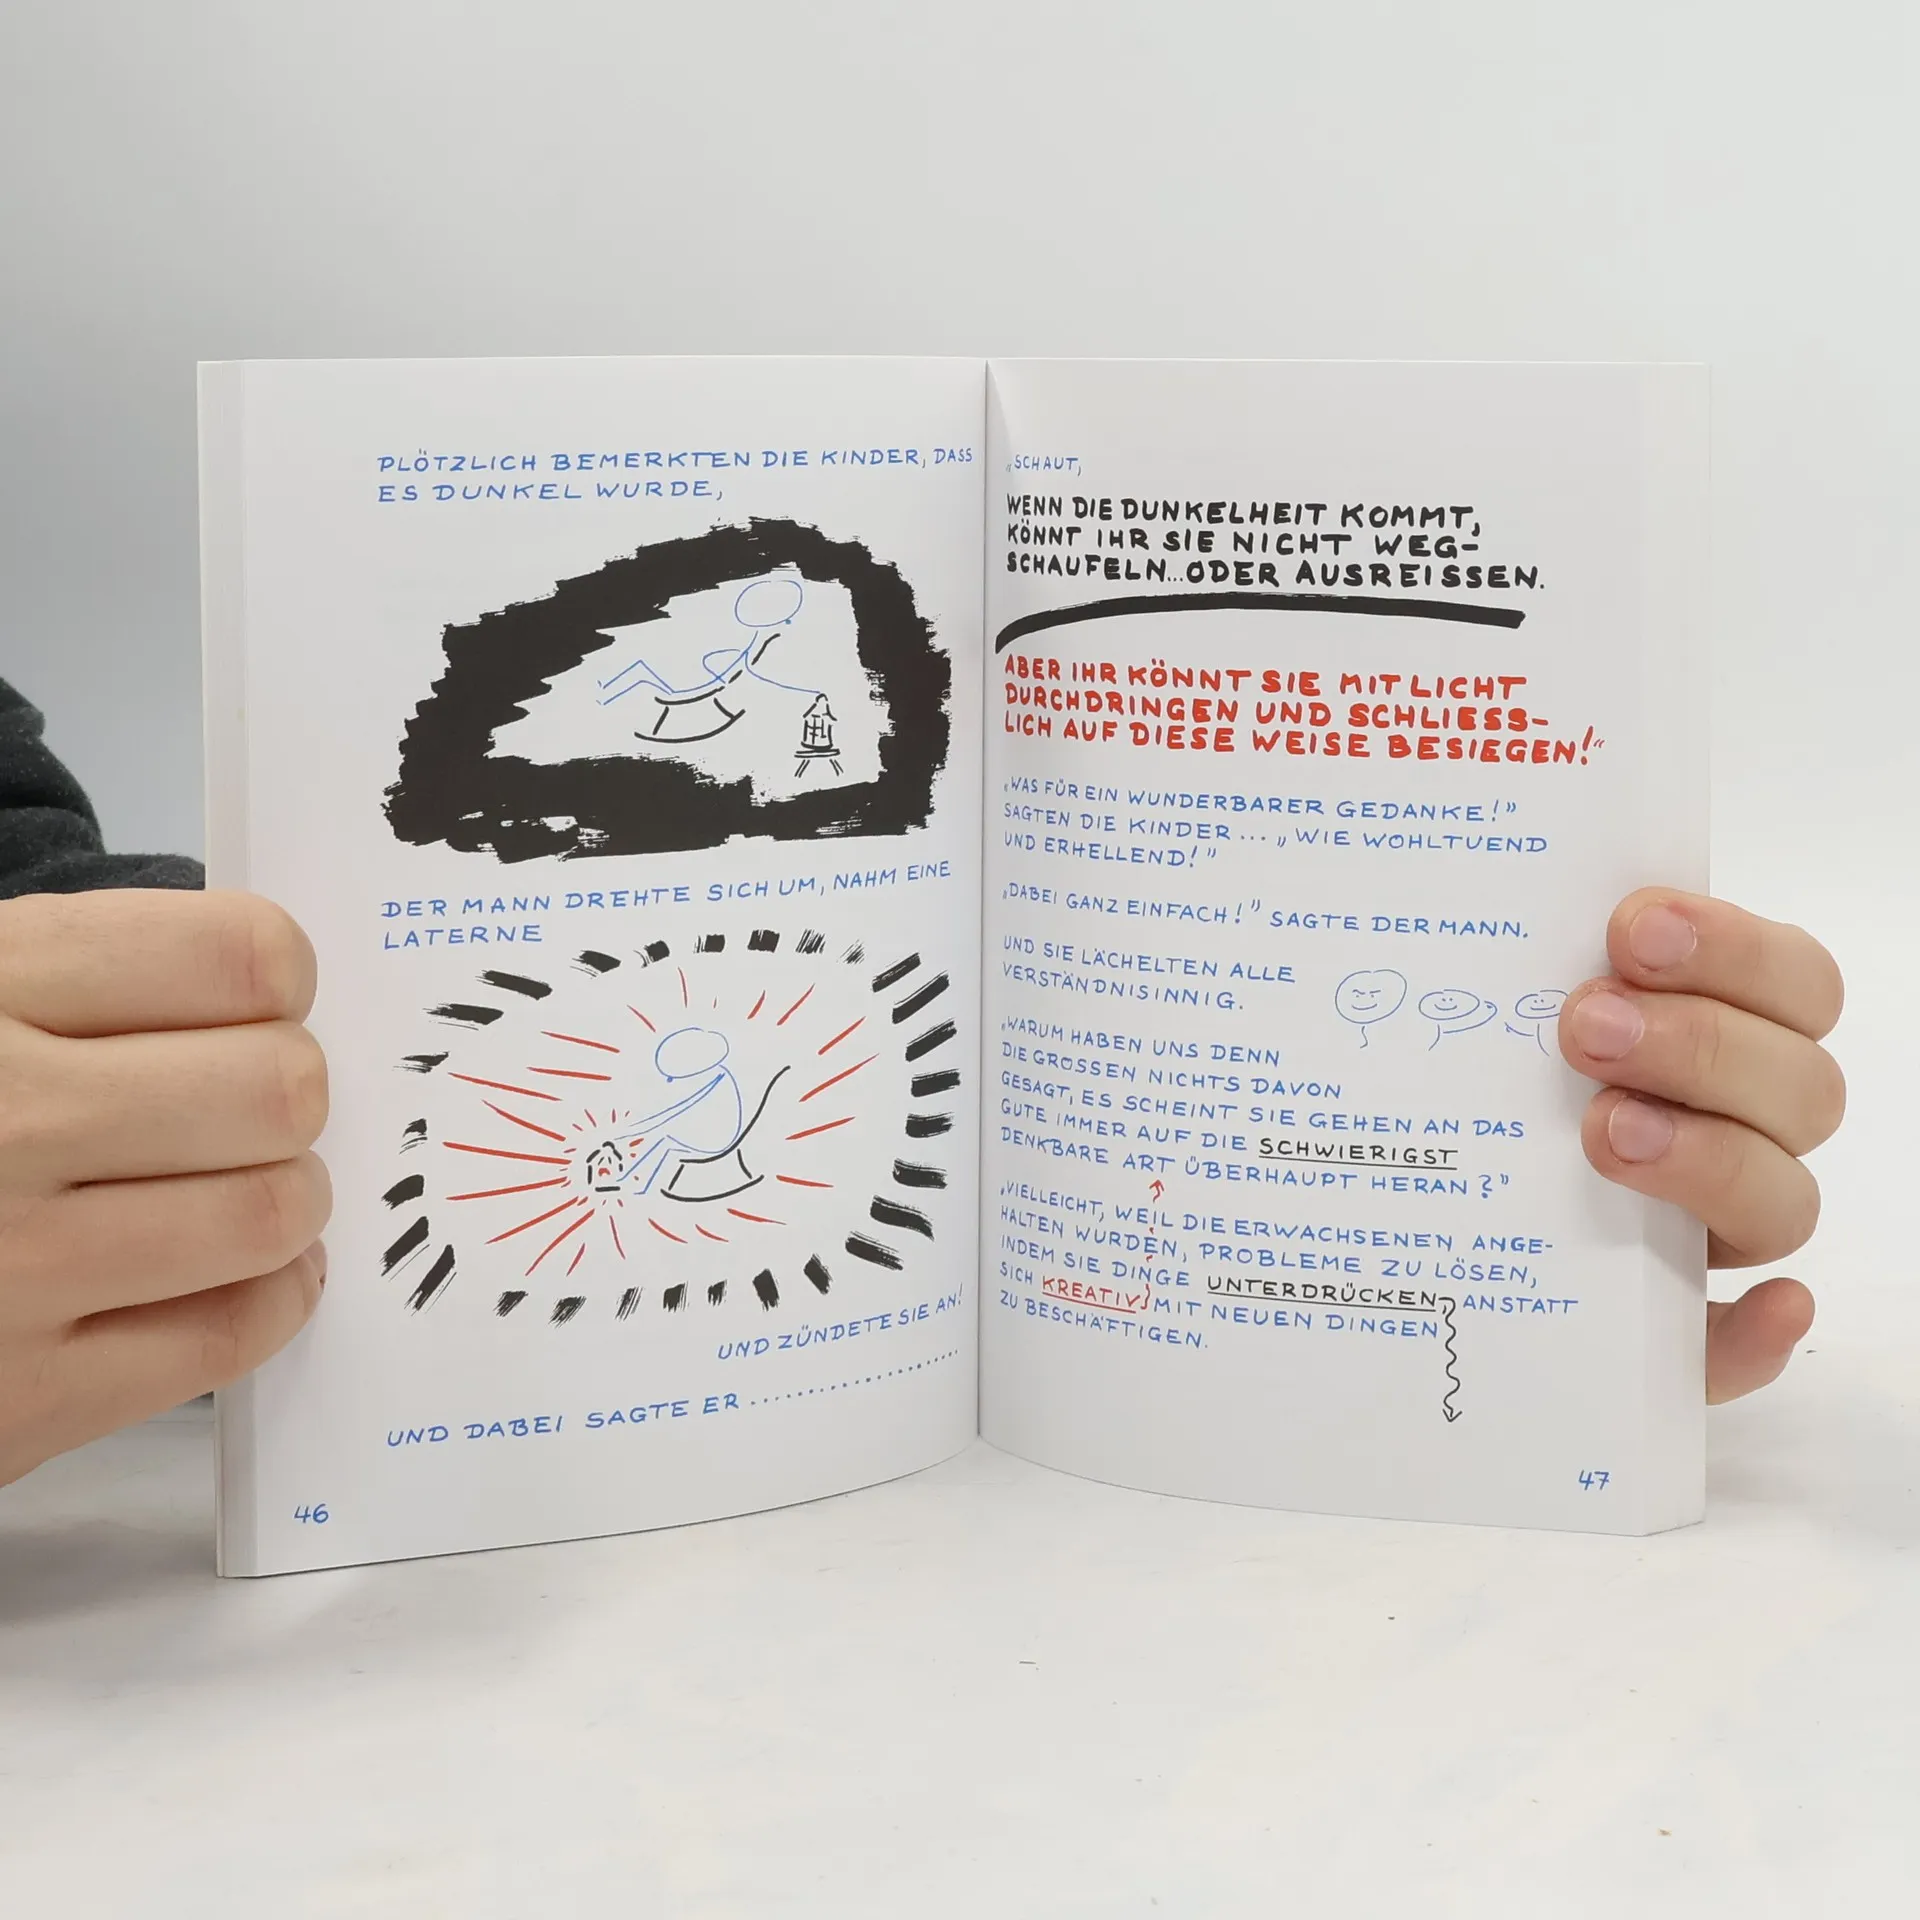 PLÖTZLICH BEMERKTEN DIE KINDER, DASS
ES DUNKEL WURDE,
DER MANN DREHTE SICH UM, NAHM EINE
LATERNE
UND ZÜNDETE SIE AN!
UND DABEI SAGTE ER..............................
46
„SCHAUT,
WENN DIE DUNKELHEIT KOMMT,
KÖNNT IHR SIE NICHT WEG-
SCHAUFELN...ODER AUSREISSEN.
ABER IHR KÖNNT SIE MIT LICHT
DURCHDRINGEN UND SCHLIESS-
LICH AUF DIESE WEISE BESIEGEN!“
„WAS FÜR EIN WUNDERBARER GEDANKE!”
SAGTEN DIE KINDER... „WIE WOHLTUEND
UND ERHELLEND!”
„DABEI GANZ EINFACH!” SAGTE DER MANN.
UND SIE LÄCHELTEN ALLE
VERSTÄNDNISINNIG.
„WARUM HABEN UNS DENN
DIE GROSSEN NICHTS DAVON
GESAGT, ES SCHEINT SIE GEHEN AN DAS
GUTE IMMER AUF DIE SCHWIERIGST
DENKBARE ART ÜBERHAUPT HERAN?”
„VIELLEICHT, WEIL DIE ERWACHSENEN ANGE-
HALTEN WURDEN, PROBLEME ZU LÖSEN,
INDEM SIE DINGE UNTERDRÜCKEN, ANSTATT
SICH KREATIV MIT NEUEN DINGEN
ZU BESCHÄFTIGEN.
47